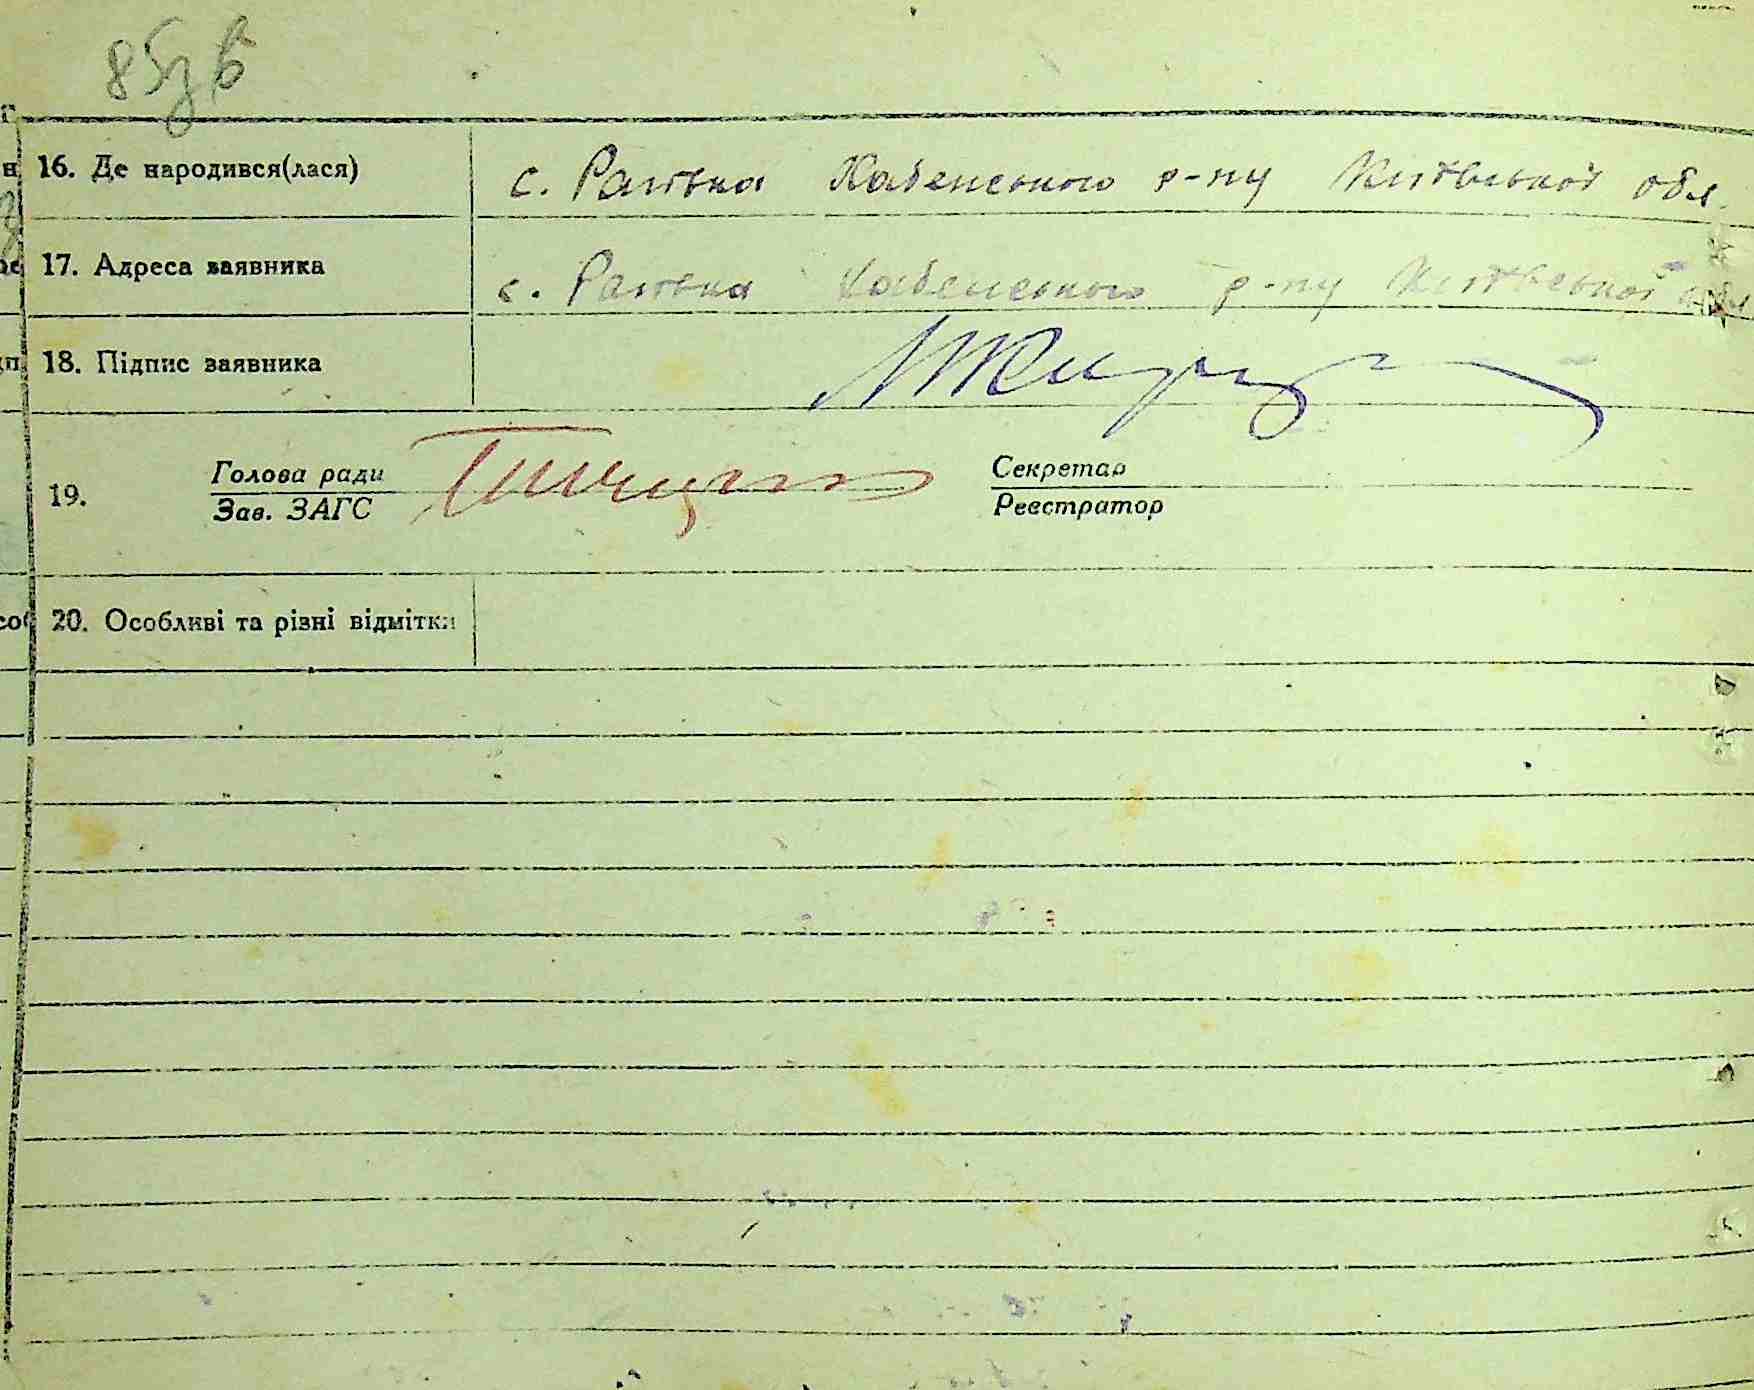 85зв
16. Де народився(лася) с. Рагівка Кабенського р-ну Київської обл.
17. Адреса заявника с. Рагівка Кабенського р-ну Київської обл
18. Підпис заявника
19. Голова ради Секретар
Зав. ЗАГС Реєстратор
20. Особливі та різні відмітки